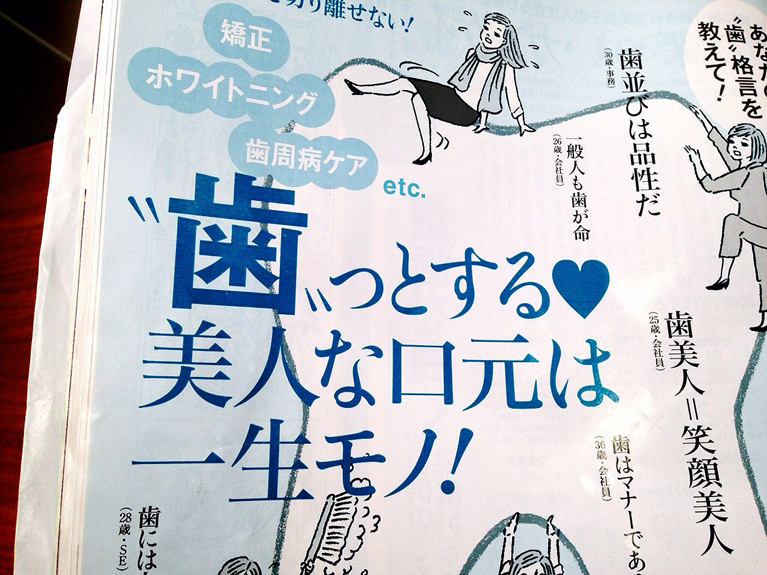 り離せない!
矯正
ホワイトニング
歯周病ケア
etc.
あなたの
“歯”格言を
教えて!
歯並びは品性だ
(30歳・事務)
一般人も歯が命
(26歳・会社員)
“歯”っとする♥
美人な口元は
一生モノ!
歯美人=笑顔美人
(25歳・会社員)
歯はマナーであ
(36歳・会社員)
歯には
(28歳・SE)